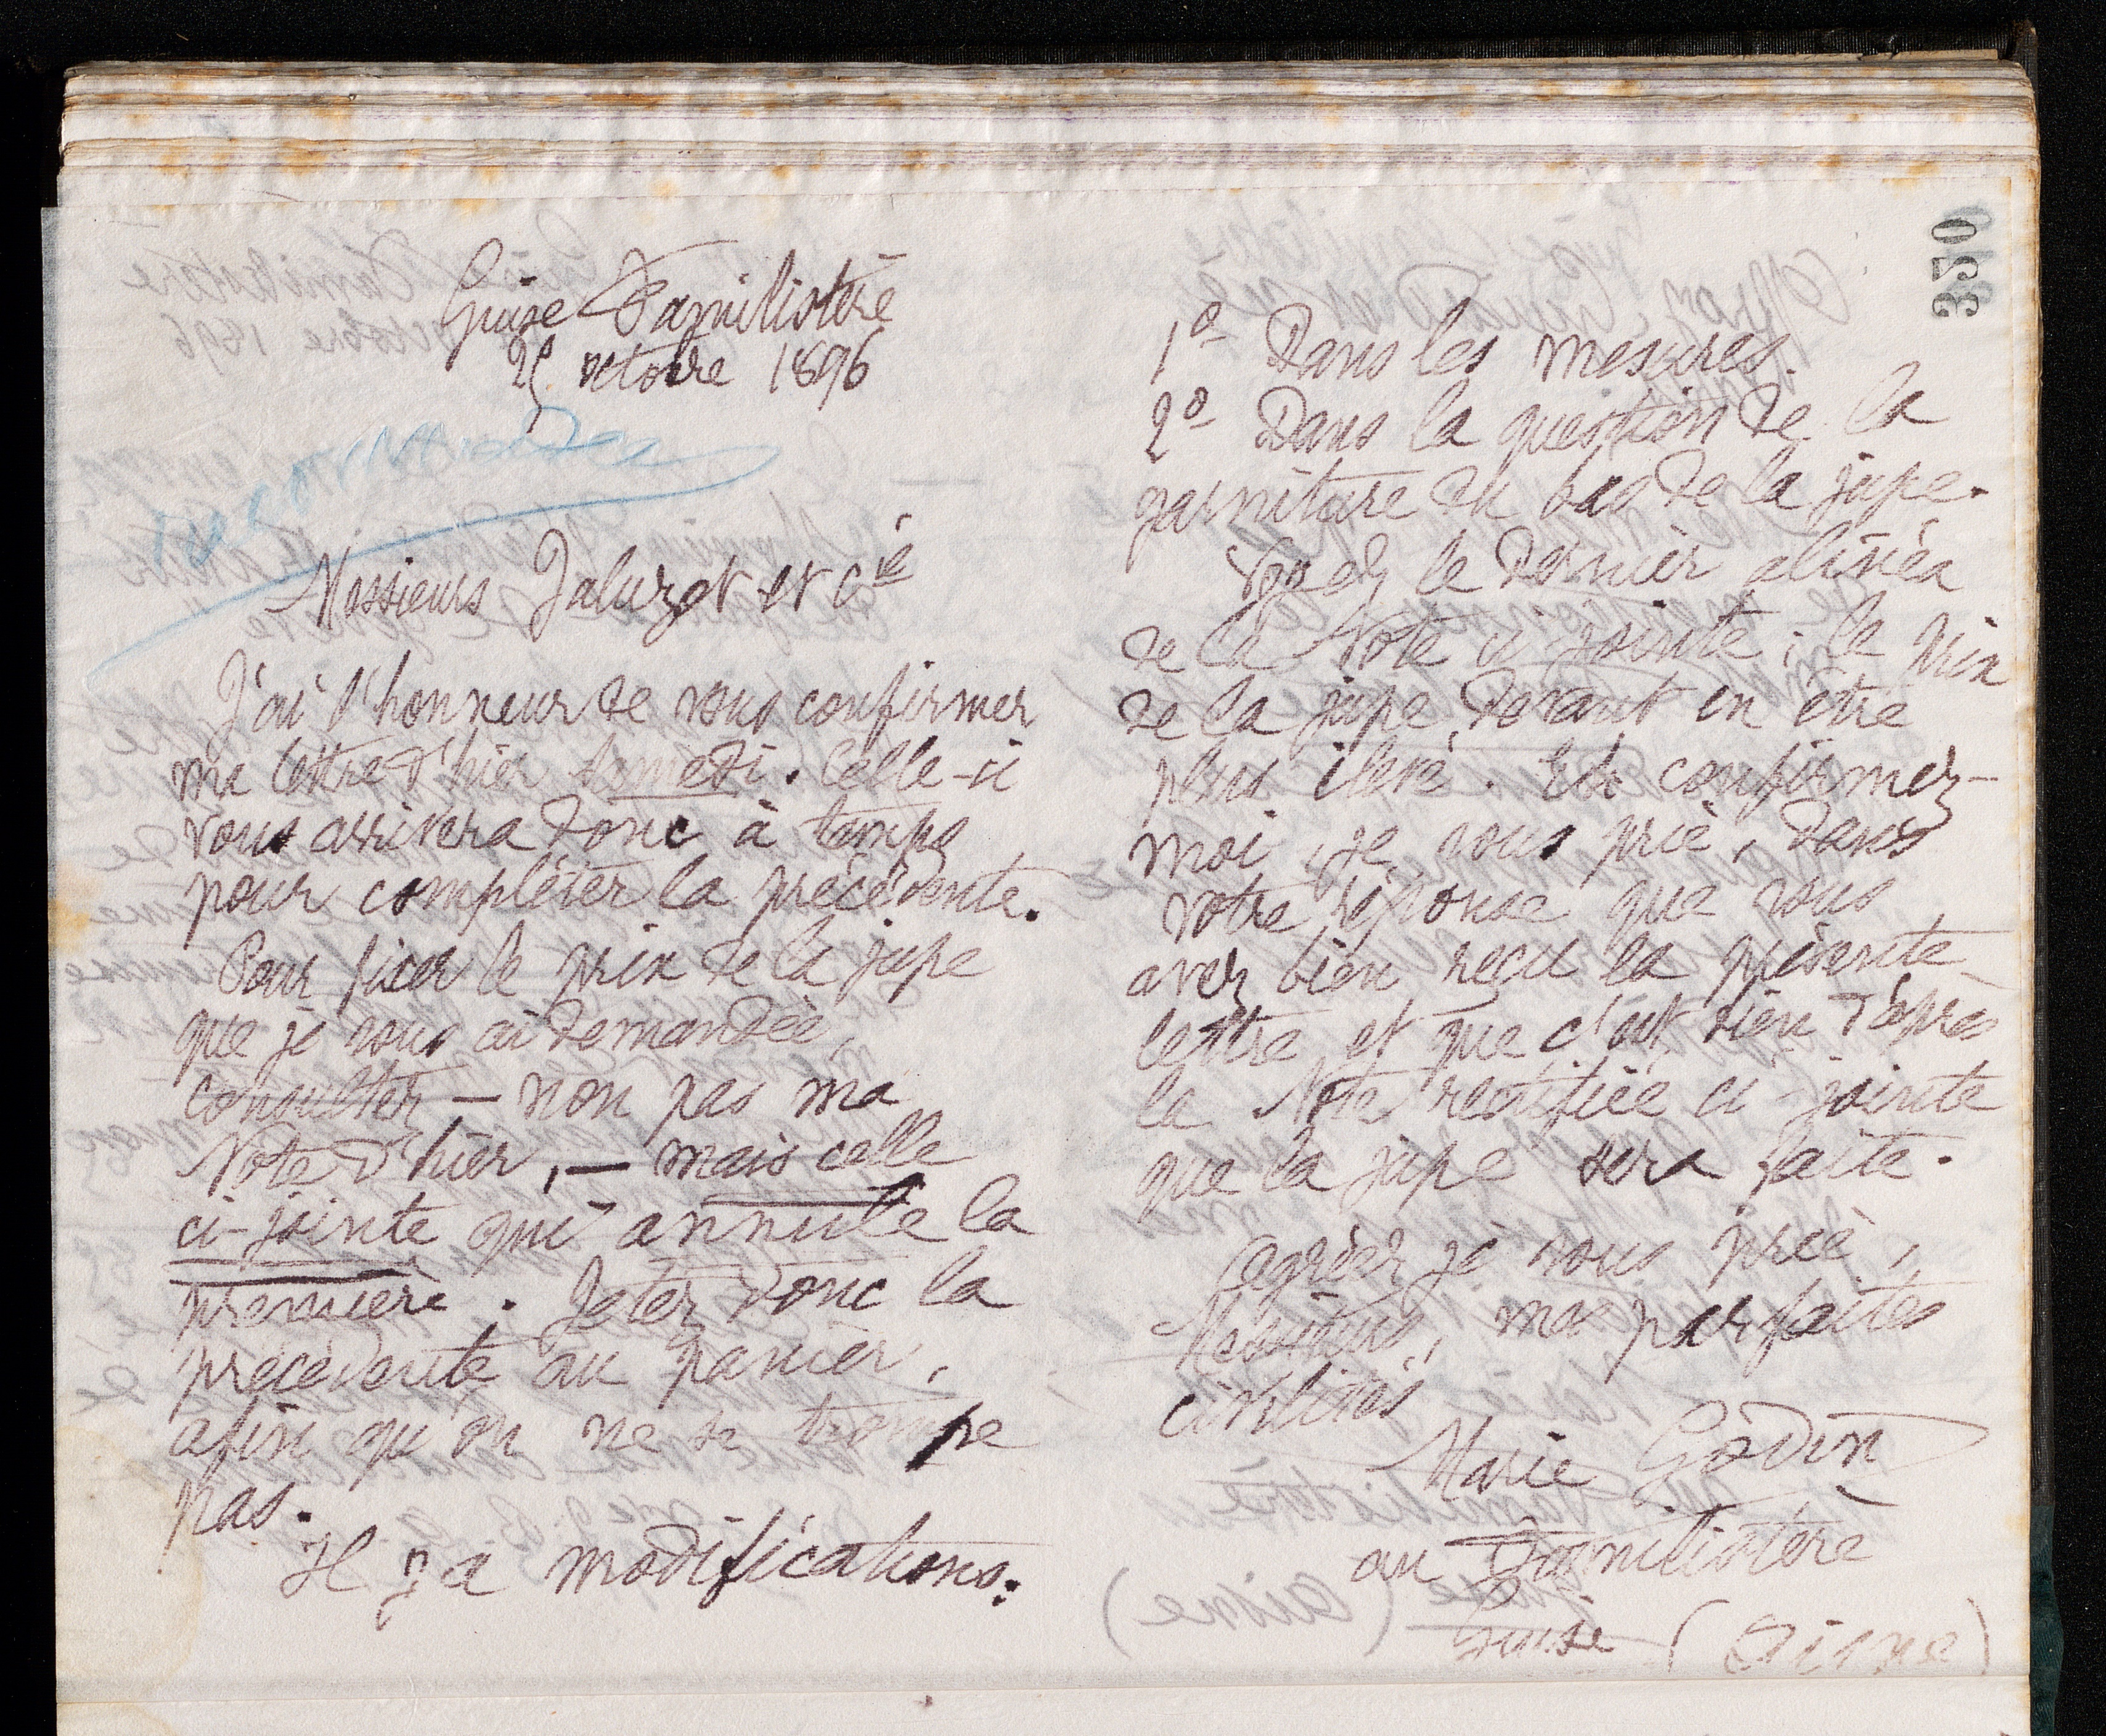 350
Guise Familistère
25 octobre 1896
Messieurs Jaluzot et Cie
J'ai l'honneur de vous confirmer
ma lettre d'hier samedi. Celle-ci
vous arrivera donc à temps
pour compléter la précédente.
Pour fixer le prix de la jupe
que je vous ai demandée,
consultez – non pas ma
Note d'hier, – mais celle
ci-jointe qui annule la
première. Jetez donc la
précédente au panier,
afin qu'on ne se trompe
pas.
Il y a modifications:
1º Dans les mesures.
2º Dans la question de la
garniture du bas de la jupe.
Voyez le dernier alinéa
de la Note ci jointe; le prix
de la jupe devant en être
plus élevé. Et confirmez-
moi, je vous prie, dans
votre réponse que vous
avez bien reçu la présente
lettre et que c'est bien d'après
la Note rectifiée ci-jointe
que la jupe sera faite.
Agréez je vous prie,
Messieurs, mes parfaites
civilités
Marie Godin
au Familistère
Guise (Aisne)